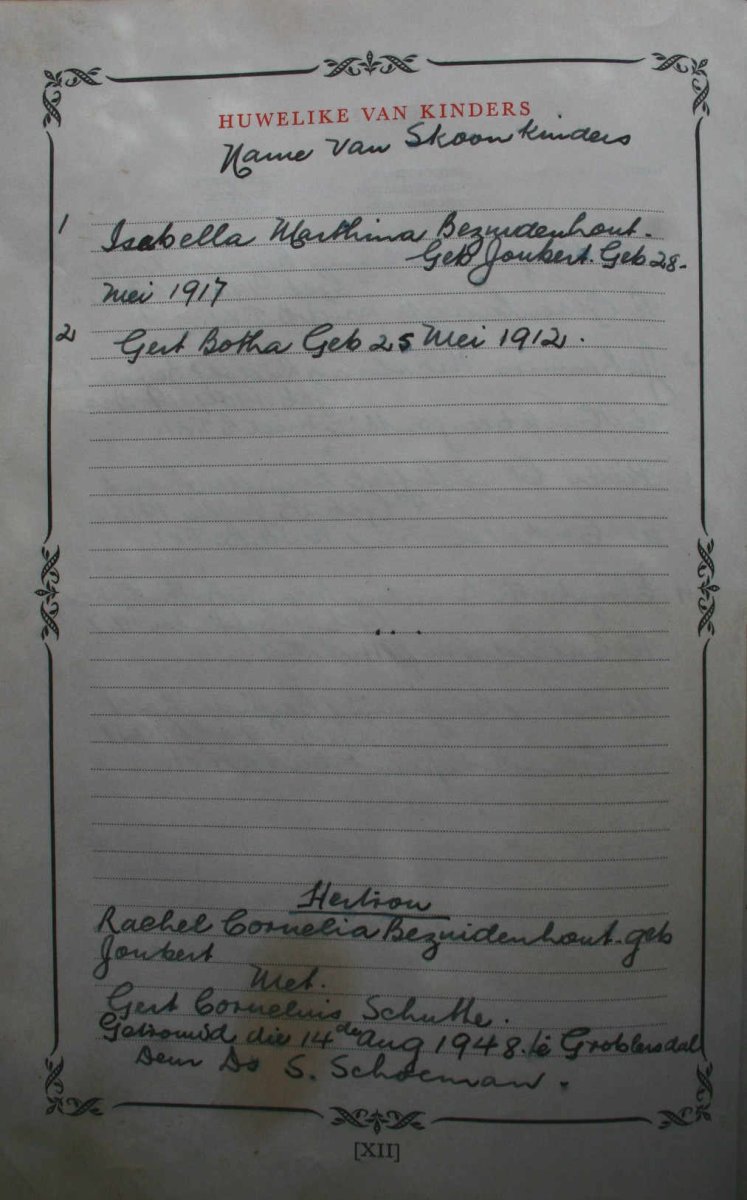 HUWELIKE VAN KINDERS
Name van Skoonkinders
1 Isabella Marthina Bezuidenhout.
Geb Joubert. Geb 28-
Mei 1917
2 Gert Botha Geb 25 Mei 1912.
...
Hertrou
Rachel Cornelia Bezuidenhout. geb
Joubert
Met.
Gert Cornelius Schutte.
Getroud die 14de Aug 1948. te Groblersdal
Deur Ds S. Schoeman.
[XII]